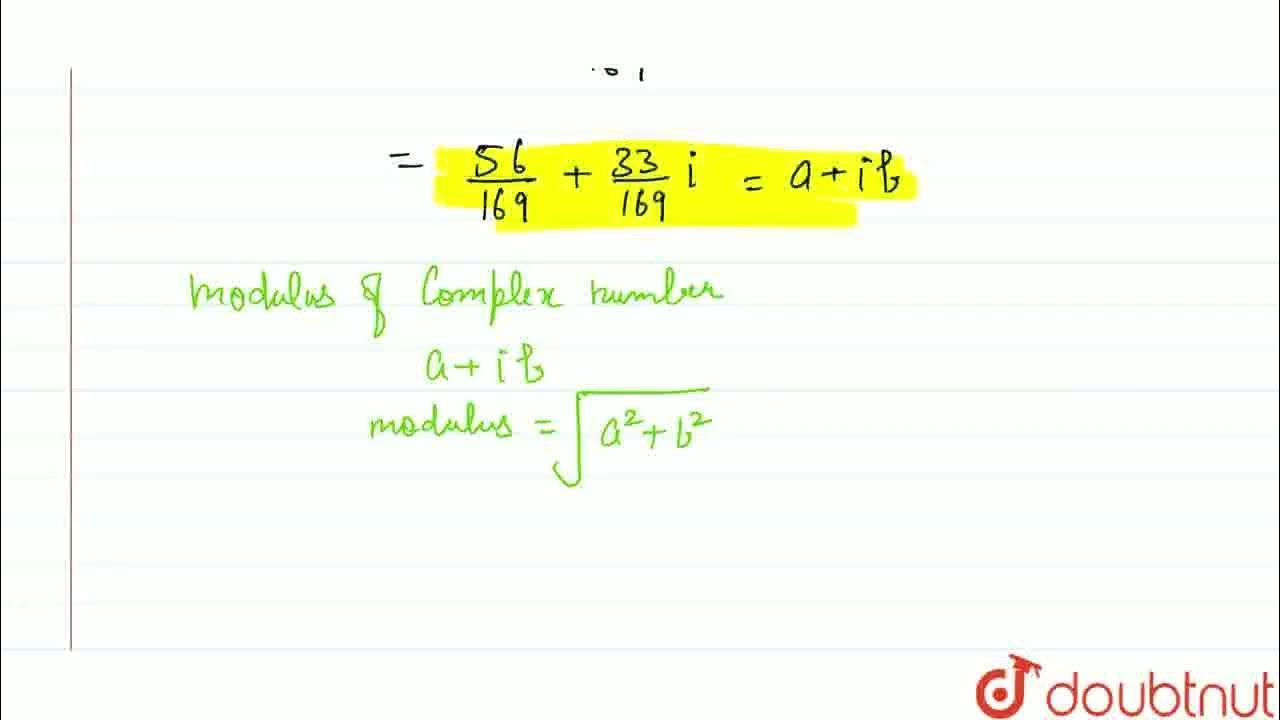 = 56/169 + 33/169 i = a + ib
modulus of Complex number
a + ib
modulus = √(a² + b²)
doubtnut